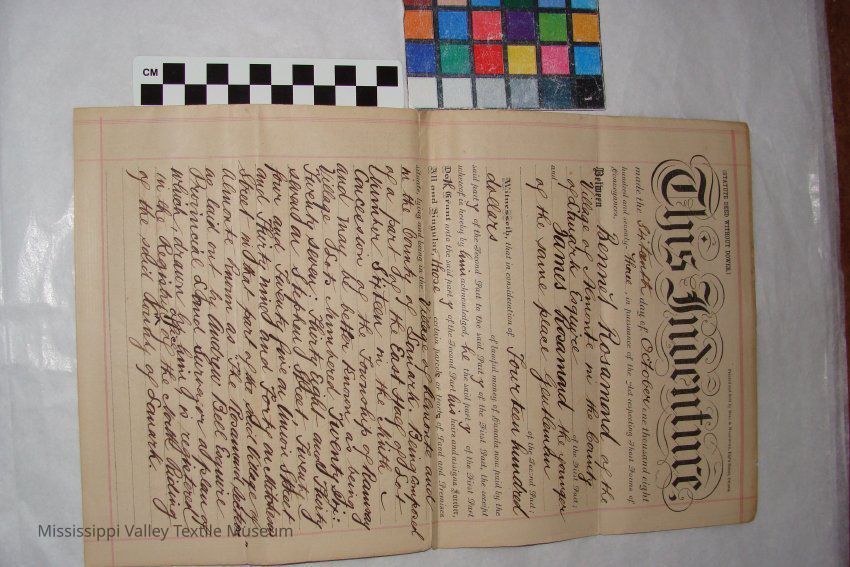 CM
STATUTE DEED WITHOUT DOWER.
This Indenture,
made the Seventh day of October one thousand eight
hundred and seventy-three, in pursuance of the Act respecting Short Forms of
Conveyances,
Between Bennett Rosamond of the
Village of Almonte in the County
of Lanark Esquire of the First Part;
and James Rosamond the younger
of the same place Gentleman
of the Second Part:
Witnesseth, that in consideration of Fourteen hundred
dollars of lawful money of Canada now paid by the
said party of the Second Part to the said Party of the First Part, the receipt
whereof is hereby by him acknowledged, he the said party of the First Part
Doth Grant unto the said party of the Second Part his heirs and assigns forever,
All and Singular, those certain parcels or tracts of Land and Premises
situate, lying and being in the Village of Almonte and
in the County of Lanark Being composed
of a part of the East Half of Lot
Number Sixteen in the Ninth
Concession of the Township of Ramsay
and may be better known as being
Village Lots numbered Twenty Six
Twenty seven, Thirty Eight and Thirty
on Stephen Street Twenty
Four and Twenty five on Union Street
and Thirty nine and Forty on
Street in that part of the said Village of
Almonte known as "The Rosamond
as laid out by Andrew Bell Esquire
Provincial Land Surveyor a plan of
which, drawn by him is registered
in the Registry of the North Riding
of the said County of Lanark.
Mississippi Valley Textile Museum